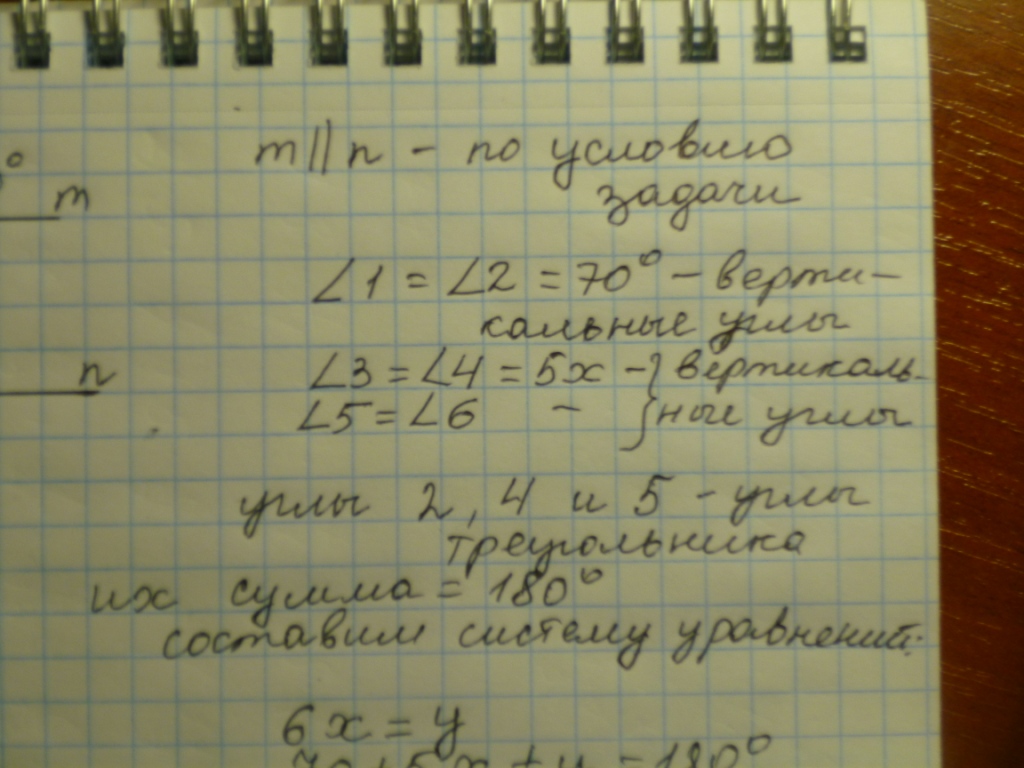 m || n - по условию
задачи
m
∠1 = ∠2 = 70° - верти-
кальные углы
n
∠3 = ∠4 = 5x - } вертикаль-
∠5 = ∠6 - } ные углы
углы 2, 4 и 5 - углы
треугольника
их сумма = 180°
составим систему уравнений:
6x = y
70+5x+y = 180°